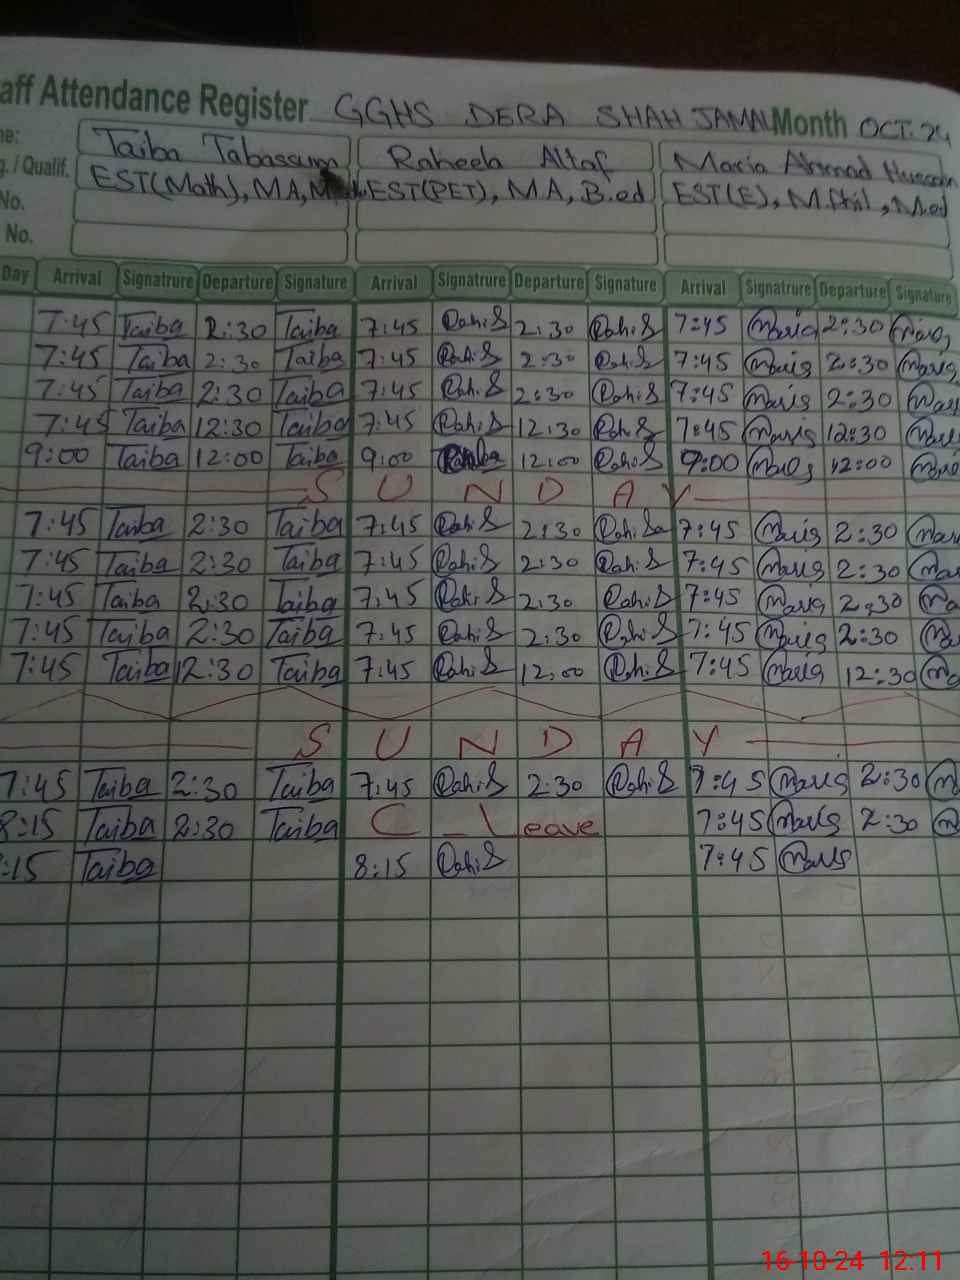 aff Attendance Register GGHS DERA SHAH JAMAL Month OCT. 24
me: Taiba Tabassum Raheela Altaf Maria Ahmad Hussain
g. / Qualif. EST(Math), MA, EST(PET), MA, B.ed EST(E), M.Phil, M.ed
No.
No.
Day Arrival Signatrure Departure Signature Arrival Signatrure Departure Signature Arrival Signatrure Departure Signature
7:45 Taiba 2:30 Taiba 7:45 Rahi 2:30 Rahi 7:45 Maria 2:30 Maria
7:45 Taiba 2:30 Taiba 7:45 Rahi 2:30 Rahi 7:45 Maria 2:30 Maria
7:45 Taiba 2:30 Taiba 7:45 Rahi 2:30 Rahi 7:45 Maria 2:30 Mari
7:45 Taiba 12:30 Taiba 7:45 Rahi 12:30 Rahi 7:45 Maria 12:30 Mari
9:00 Taiba 12:00 Taiba 9:00 12:00 Rahi 9:00 Maria 12:00 Mari
SUNDAY
7:45 Taiba 2:30 Taiba 7:45 Rahi 2:30 Rahi 7:45 Maria 2:30 Mari
7:45 Taiba 2:30 Taiba 7:45 Rahi 2:30 Rahi 7:45 Maria 2:30 Ma
7:45 Taiba 2:30 Taiba 7:45 Rahi 2:30 Rahi 7:45 Maria 2:30 Ma
7:45 Taiba 2:30 Taiba 7:45 Rahi 2:30 Rahi 7:45 Maria 2:30 Ma
7:45 Taiba 12:30 Taiba 7:45 Rahi 12:00 Rahi 7:45 Maria 12:30 Ma
SUNDAY
7:45 Taiba 2:30 Taiba 7:45 Rahi 2:30 Rahi 7:45 Maria 2:30 M
8:15 Taiba 2:30 Taiba C-Leave 7:45 Maria 2:30 M
:15 Taiba 8:15 Rahi 7:45 Maria
16-10-24 12:11